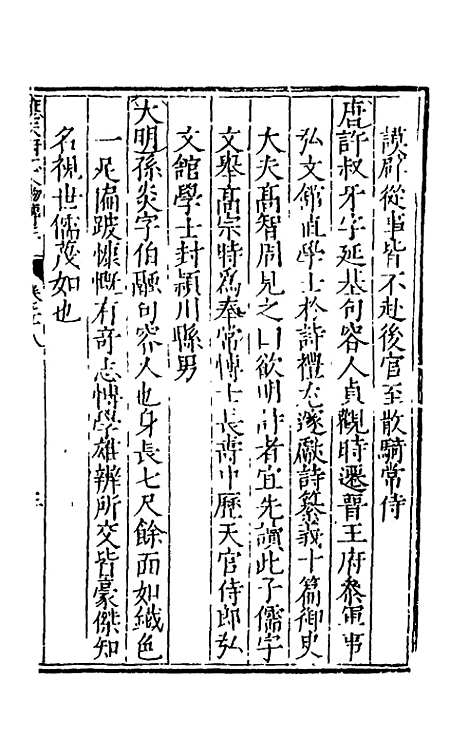 謨辟從事皆不赴後官至散騎常侍
唐許叔牙字延基句容人貞觀時遷晉王府叅軍事
弘文館直學士於詩禮尤邃獻詩纂義十篇御史
大夫高智周見之曰欲明詩者宜先讀此子儒字
文舉高宗時爲奉常博士長壽中歷天官侍郎弘
文館學士封潁川縣男
大明孫炎字伯融句容人也身長七尺餘面如鐵色
一足偏跛慷慨有奇志博學雄辨所交皆豪傑知
名視世儒蔑如也